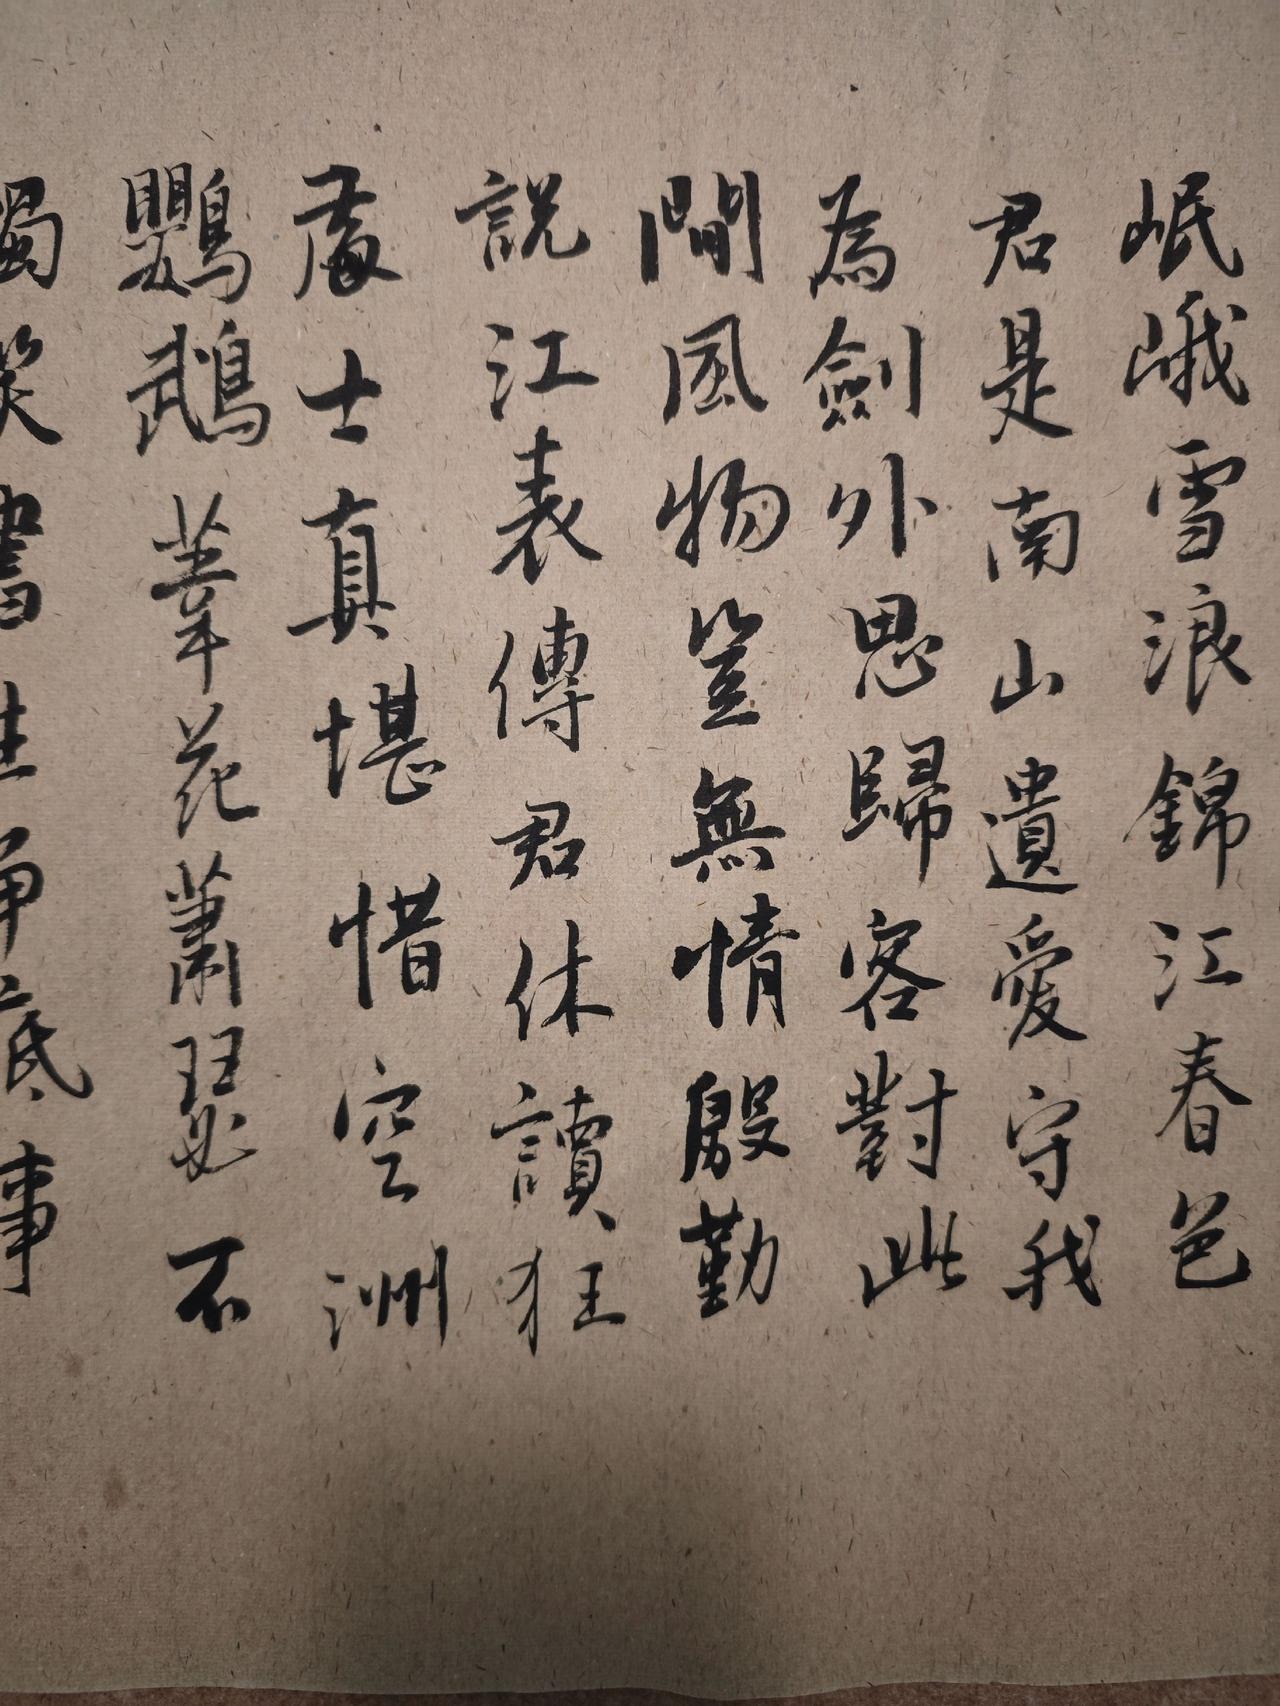 岷峨雪浪錦江春色
君是南山遺愛守我
為劍外思歸客對此
間風物豈無情殷勤
說江表傳君休讀狂
處士真堪惜空洲
鸚鵡葦花蕭瑟不
獨笑書生爭底事